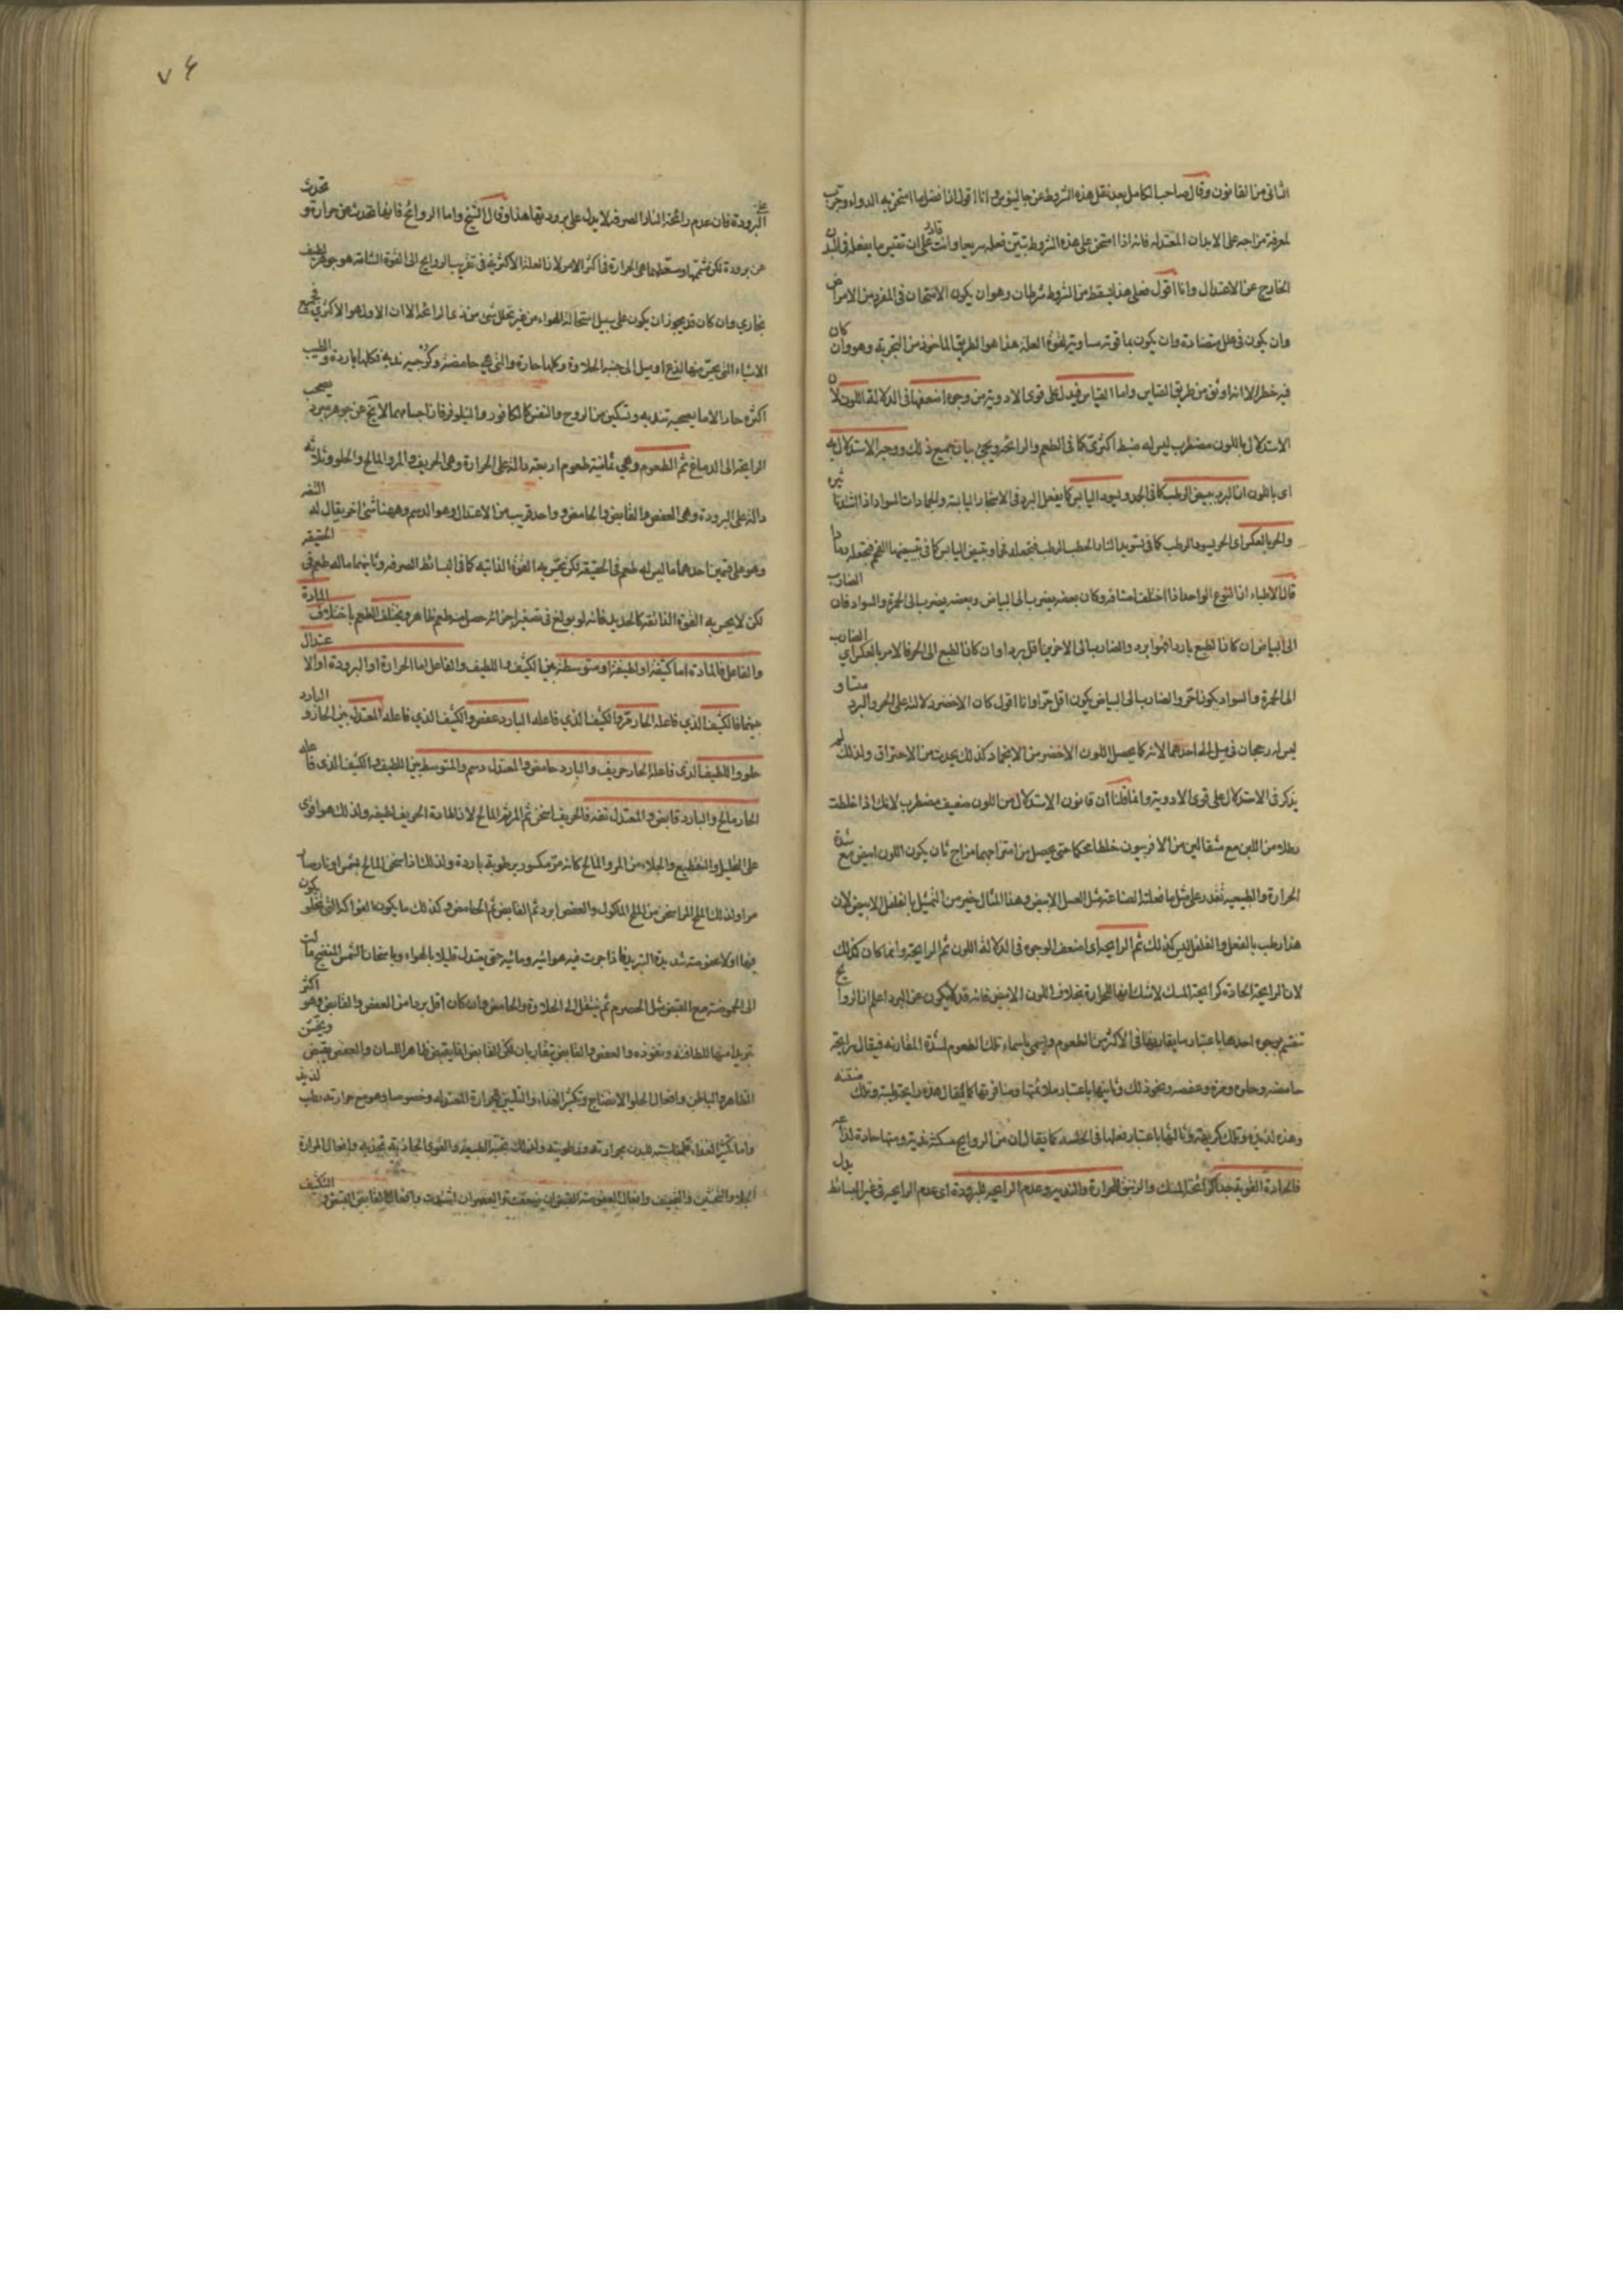 الثانى من القانون وقال صاحب الكامل بعد نقل هذه الشروط عن جالينوس وانا اقول اذا فضل ما امتحن به الدواء وجرب
لمعرفة مزاجه على الابدان المعتدله فانه اذا امتحن على هذه الشروط تبين فعله سريعا وانت قادر على ان تقيس ما يفعل فى البدن
الخارج عن الاعتدال وانا اقول فعلى هذا يسقط من الشروط شرطان وهو ان يكون الامتحان فى المفرد من الامراض
وان يكون فى علل متضادة وان يكون بما قوته مساوية لقوة العلة هذا هو الطريق الماخوذ من التجربة وهو وان كان
فيه خطر الا انه اوثق من طريق القياس واما القياس فيدل على قوى الادوية من وجوه اضعفها فى الدلالة اللون لان
الاستدلال باللون مضطرب ليس له ضبط اكثرى كما فى الطعم والرائحة ويجئ بيان جميع ذلك ووجه الاستدلال به
اى باللون ان البرد يبيض الرطب كما فى الجمد ويسود اليابس كما يفعل البرد فى الاشجار اليابسة والجمادات السواد اذا اشتد
والحر بالعكس اى الحر يسود الرطب كما فى تسويد النار الحطب الرطب فتجعله فحما ويبيض اليابس كما فى تبييضها الفحم فتجعله رمادا
قال الاطباء ان النوع الواحد اذا اختلف اصنافه وكان بعضه يضرب الى البياض وبعضه يضرب الى الحمرة والسواد فان الضارب
الى البياض ان كان الطبع باردا فهو ابرد والضارب الى الاخرين اقل بردا وان كان الطبع الى الحر فالامر بالعكس اى الضارب
الى الحمرة والسواد يكون احر والضارب الى البياض يكون اقل حرا وانا اقول كان الاخضر دلالته على الحر والبرد متساو
ليس له رجحان فى ميل الى احدهما لانه كما يحصل اللون الاخضر من الانجماد كذلك يحدث من الاحتراق ولذلك لم
يذكر فى الاستدلال على قوى الادوية وانما قلنا ان قانون الاستدلال من اللون ضعيف مضطرب لانك اذا خلطت
رطلا من اللبن مع مثقالين من الافربيون خلطا محكما حتى يحصل من امتزاجهما مزاج ثان يكون اللون ابيض مع شدة
الحرارة والطبيعة تقدر على مثل ما فعلته الصناعة مثل العسل الابيض وهذا المثال خير من التمثيل بالفلفل الابيض لان
هذا رطب بالفعل والفلفل ليس كذلك ثم الرايحة اى اضعف الوجوه فى الدلالة اللون ثم الرايحة وانما كان كذلك
لان الرايحة الحادة كرايحة المسك لا شك انها للحرارة بخلاف اللون الابيض فانه قد لا يكون عن البرد اعلم ان الروايح
تنقسم بوجوه احدها باعتبار ما يقارنها فى الاكثر من الطعوم ويسمى باسماء تلك الطعوم لشدة المقارنة فيقال رايحة
حامضة وحلوة ومرة وعفصة ونحو ذلك وثانيها باعتبار ملائمتها ومنافرتها كما يقال هذه رايحة طيبة وتلك منتنة
وهذه لذيذة وتلك كريهة وثالثها باعتبار فعلها فى الحاسة كما يقال ان من الروايح مسكنة مخدرة ومنها حادة لذاعة
فالحادة القوية جدا كرائحة المسك والزنبق للحرارة والندية وعدم الرايحة للبرودة اى عدم الرايحة فى غير البسائط يدل
على البرودة فان عدم رائحة النار الصرفة لا يدل على برودتها هذا وقال الشيخ واما الروائح فانها تحدث عن حرارة وتحدث
عن برودة لكن مشمها ومسعطها هى الحرارة فى اكثر الامور لان العلة الاكثرية فى تقريب الروايح الى القوة الشامة هو جوهر لطيف
بخارى وان كان قد يجوز ان يكون على سبيل استحالة الهواء من غير تحلل شئ من ذى الرائحة الا ان الاول هو الاكثرى فجميع
الاشياء التى يحس منها لذع او ميل الى جنبة الحلاوة وكلها حارة والتى هى حامضة وكرجية ندية فكلها باردة والطيب
اكثره حار الا ما يصحبه تندية وتسكين من الروح والنفس كالكافور والنيلوفر فان اجسامهما لا تخ عن جوهر مبرد يصحب
الرايحة الى الدماغ ثم الطعوم وهى ثمانية طعوم اربعة دالة على الحرارة وهى الحريف والمر والمالح والحلو وثلاثة
دالة على البرودة وهى العفص والقابض والحامض وواحد قريب من الاعتدال وهو الدسم وههنا شئ اخر يقال له التفه
وهو على قسمين احدهما ما ليس له طعم فى الحقيقة لكن يحس به القوة الذائقة كما فى البسائط الصرفة وثانيهما ما له طعم فى الحقيقة
لكن لا يحس به القوة الذائقة كالحديد فانه لو بولغ فى تصغير اجزائه حصل منه طعم ظاهر ويختلف الطعم باختلاف المادة
والفاعل فالمادة اما كثيفة او لطيفة او متوسطة بين الكثيف واللطيف والفاعل اما الحرارة او البرودة او الاعتدال
بينهما فالكثيف الذى فاعله الحار مر والكثيف الذى فاعله البارد عفص والكثيف الذى فاعله المعتدل بين الحار والبارد
حلو واللطيف الذى فاعله الحار حريف والبارد حامض والمعتدل دسم والمتوسط بين اللطيف والكثيف الذى فاعله
الحار مالح والبارد قابض والمعتدل تفه فالحريف اسخن ثم المر ثم المالح لان المادة الحريف لطيفة ولذلك هو اقوى
على التحليل والتقطيع والجلاء من المر والمالح كانه مر مكسور برطوبة باردة ولذلك اذا سخن المالح بشمس او نار صار
مرا ولذلك الملح المر اسخن من الملح المأكول والعفص ابرد ثم القابض ثم الحامض وكذلك ما يكون الفواكه التى تحلو يكون
فيها اولا عفوصة شديدة التبريد فاذا جرت فيه هوائية ومائية حتى يعتدل قليلا بالهواء وباسخان الشمس المنضج مالت
الى الحموضة مع القبض مثل الحصرم ثم ينتقل الى الحلاوة والحامض وان كان اقل بردا من العفص والقابض فهو اكثر
تبريدا منها للطافته ونفوذه والعفص والقابض يتقاربان لكن القابض انما يقبض ظاهر اللسان والعفص يقبض ويخشن
الظاهر والباطن وافعال الحلو الانضاج وتكثير الغذاء والتليين للحرارة المعتدلة وخصوصا وهو مع حرارته رطب لذيذ
واما تكثير الغذاء فلمناسبته للبدن بحرارته ورطوبته ولذلك تحبه الطبيعة والقوى الجاذبة تجذبه وافعال المرارة
الجلاء والتخشين والتجفيف وافعال العفوصة القبض ان ضعفت والعصر ان اشتدت وافعال القابض القبض التكثيف